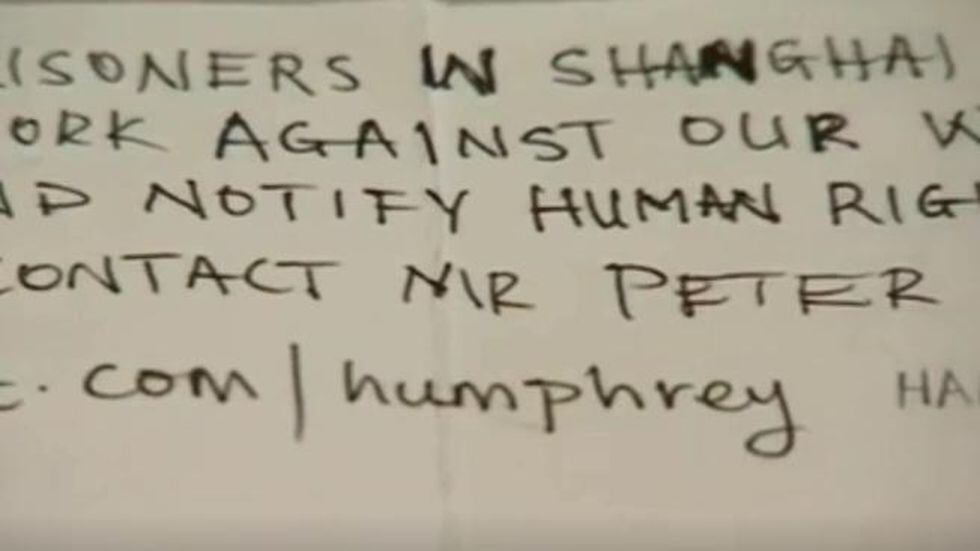 ISONERS IN SHANGHAI
ORK AGAINST OUR W
ND NOTIFY HUMAN RIGH
CONTACT MR PETER
. com/humphrey HA